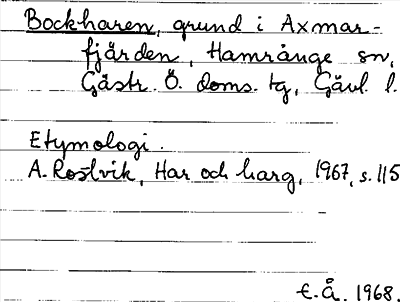 Bockharen, grund i Axmar-
fjärden, Hamrånge sn,
Gästr. Ö. doms. tg, Gävl. l.
Etymologi.
A. Rostvik, Har och harg, 1967, s. 115
t.Å. 1968.